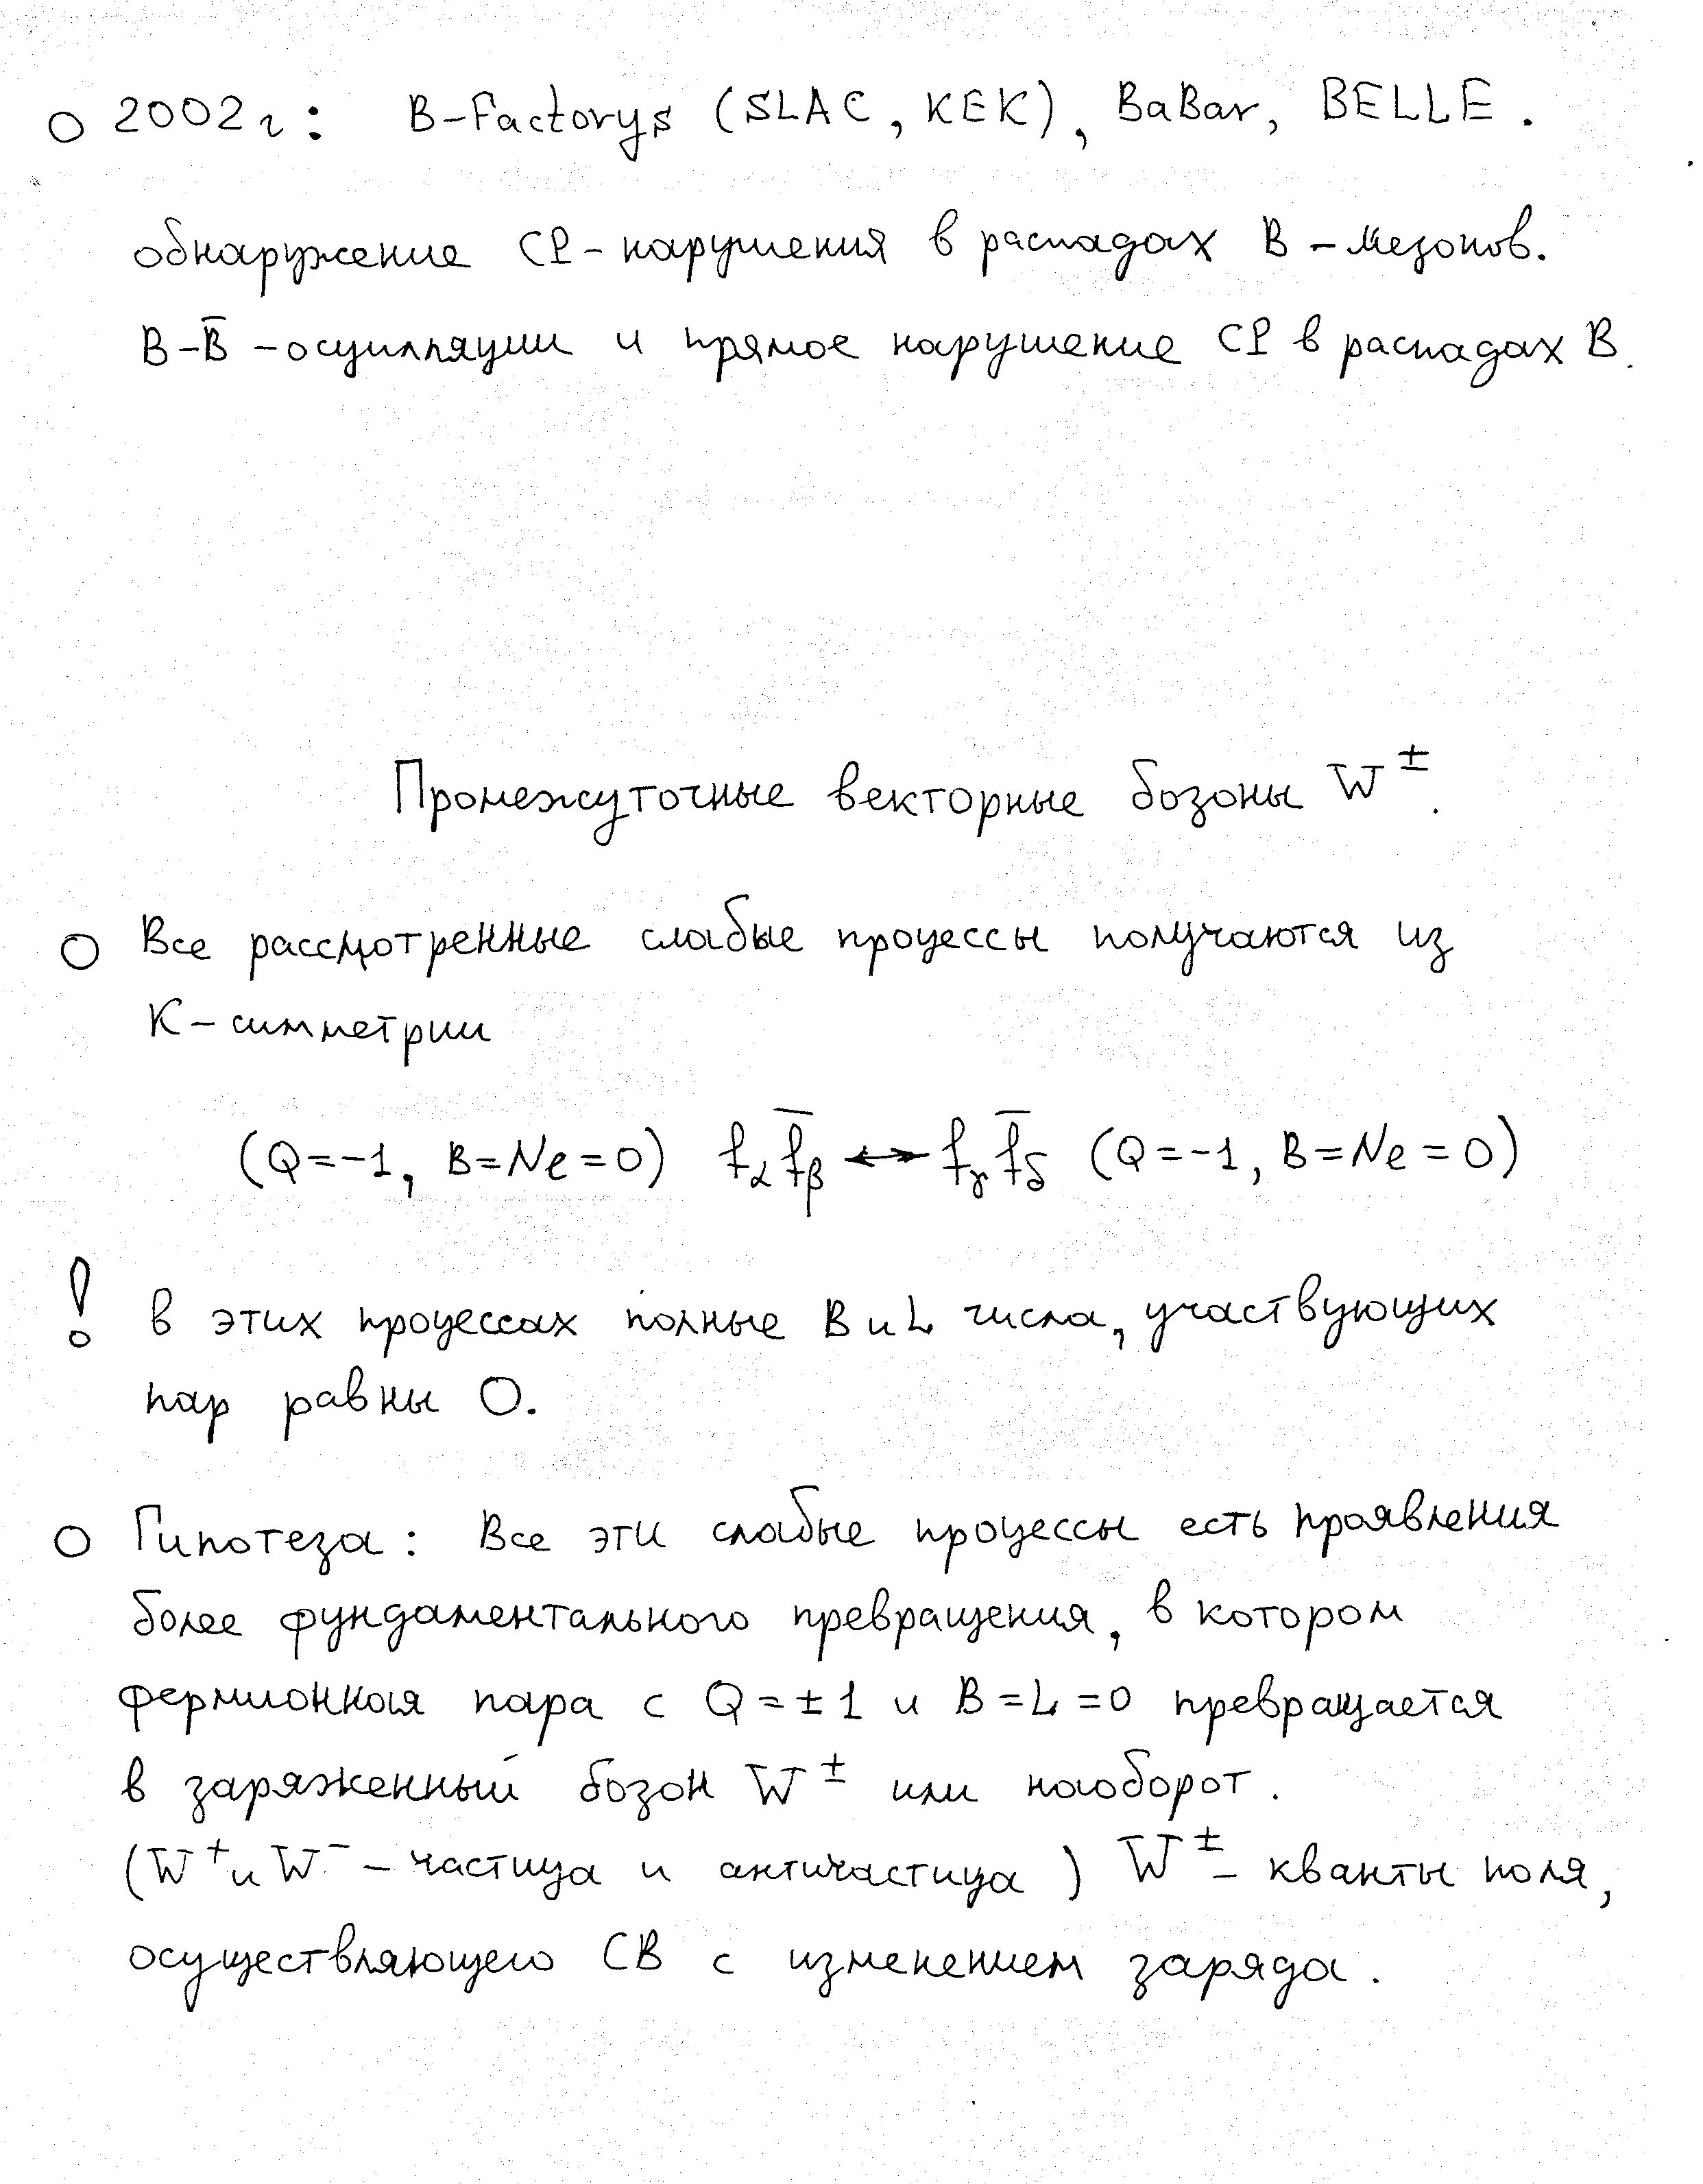 ○ 2002г: B-Factorys (SLAC, KEK), BaBar, BELLE.
обнаружение CP-нарушения в распадах B-мезонов.
B-B̅-осцилляции и прямое нарушение CP в распадах B.
Промежуточные векторные бозоны W±.
○ Все рассмотренные слабые процессы получаются из
К-симметрии
(Q=-1, B=Ne=0) f_α f̅_β ↔ f_γ f̅_δ (Q=-1, B=Ne=0)
! в этих процессах полные B и L числа, участвующих
пар равны 0.
○ Гипотеза: Все эти слабые процессы есть проявления
более фундаментального превращения, в котором
фермионная пара с Q=±1 и B=L=0 превращается
в заряженный бозон W± или наоборот.
(W⁺ и W⁻ - частица и античастица) W± - кванты поля,
осуществляющего СВ с изменением заряда.